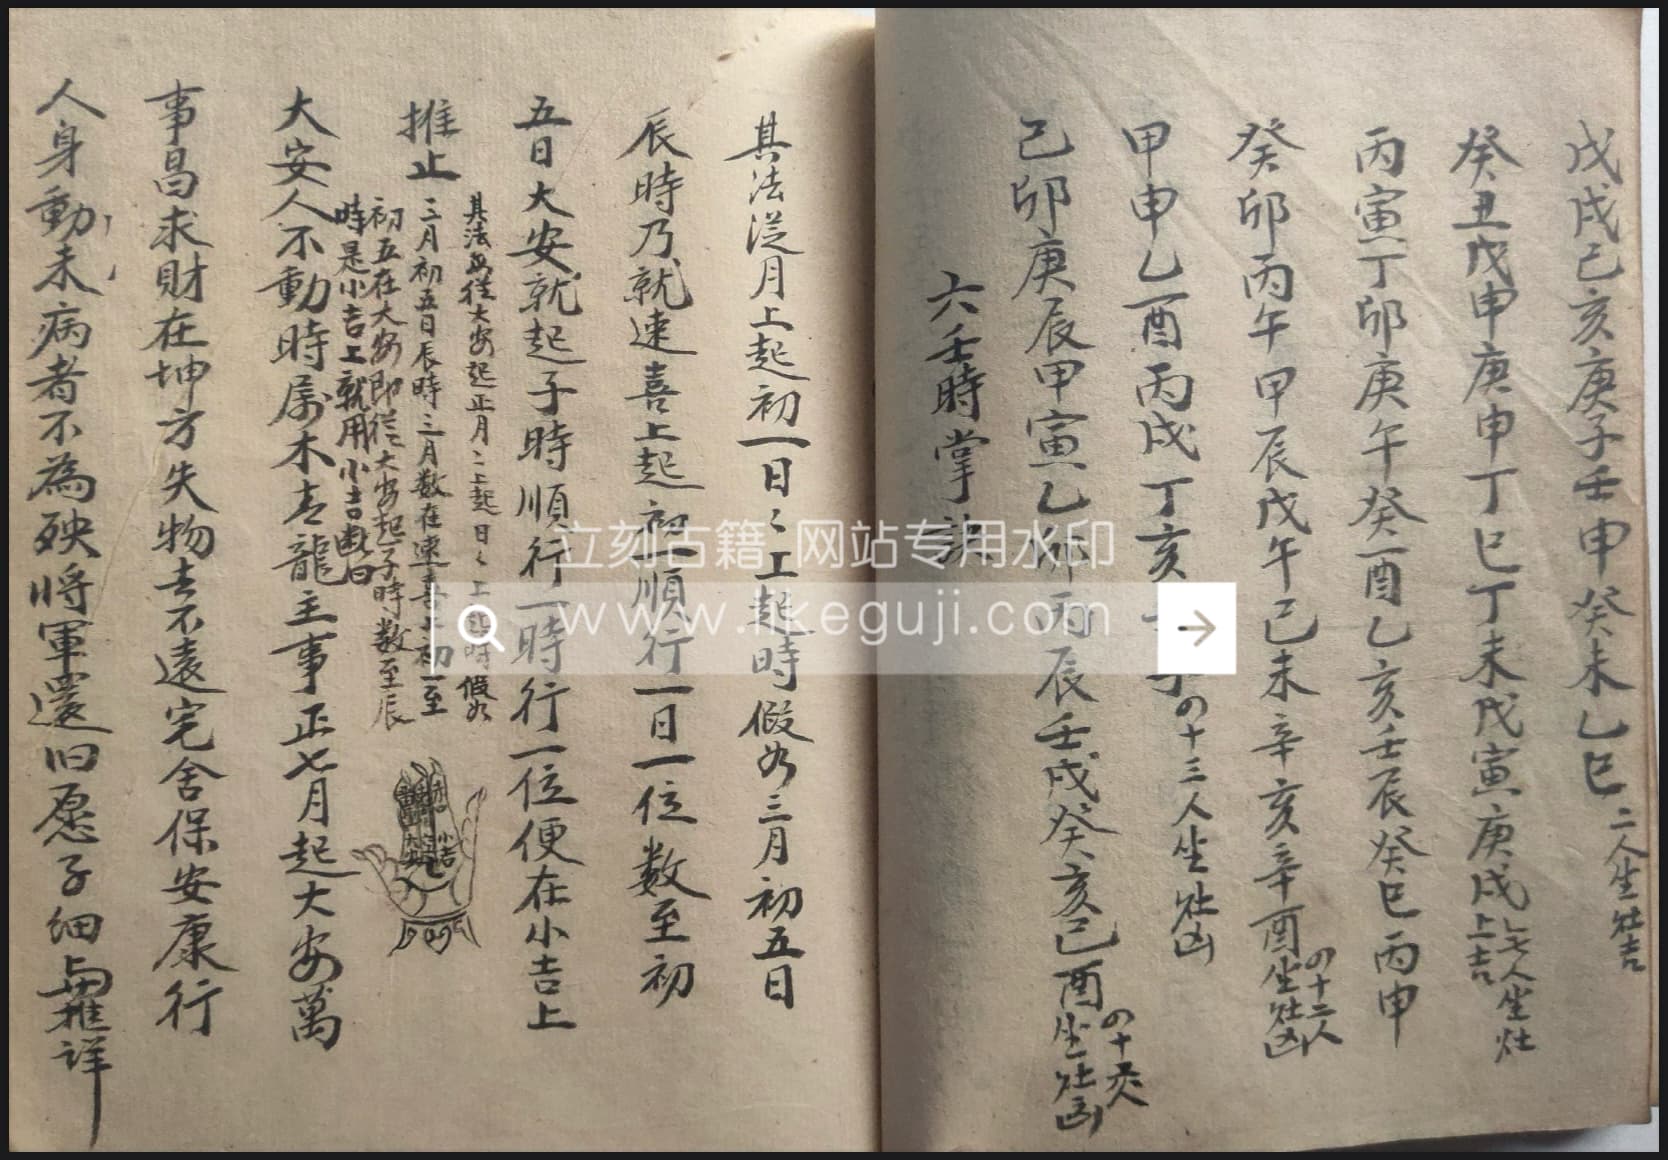 戊戌己亥庚子壬申癸未乙巳
二人坐灶吉
癸丑戊申庚申丁巳丁未戊寅庚戌
七人坐灶
上吉
丙寅丁卯庚午癸酉乙亥壬辰癸巳丙申
癸卯丙午甲辰戊午己未辛亥辛酉
四十二人
坐灶凶
甲申乙酉丙戌丁亥
四十三人坐灶凶
己卯庚辰甲寅乙卯丙辰壬戌癸亥己酉
坐灶凶
六壬時掌訣
其法從月上起初一日日上起時假如三月初五日
辰時乃就速喜上起初一順行一日一位數至初
五日大安就起子時順行一時行一位便在小吉上
推止
其法从從大安起正月月上起日日上起時假如
三月初五日辰時三月数在速喜上初一至
初五在大安即從大安起子時数至辰
時是小吉上就用小吉断曰
小吉
大安
大安人不動時属木青龍主事正七月起大安萬
事昌求財在坤方失物去不遠宅舍保安康行
人身動未病者不為殃將軍還旧愿子細與推詳
立刻古籍 网站专用水印
www.likeguji.com